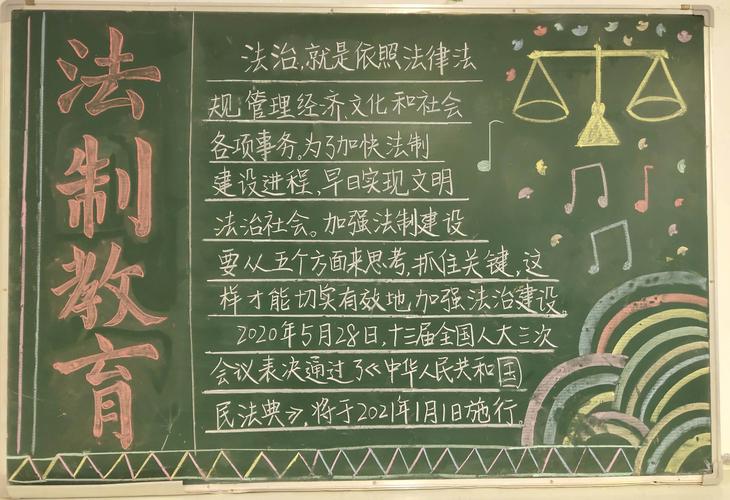 法制教育
法治,就是依照法律法
规,管理经济文化和社会
各项事务。为了加快法制
建设进程,早日实现文明
法治社会。加强法制建设
要从五个方面来思考,抓住关键,这
样才能切实有效地,加强法治建设。
2020年5月28日,十三届全国人大三次
会议表决通过了《中华人民共和国
民法典》,将于2021年1月1日施行。